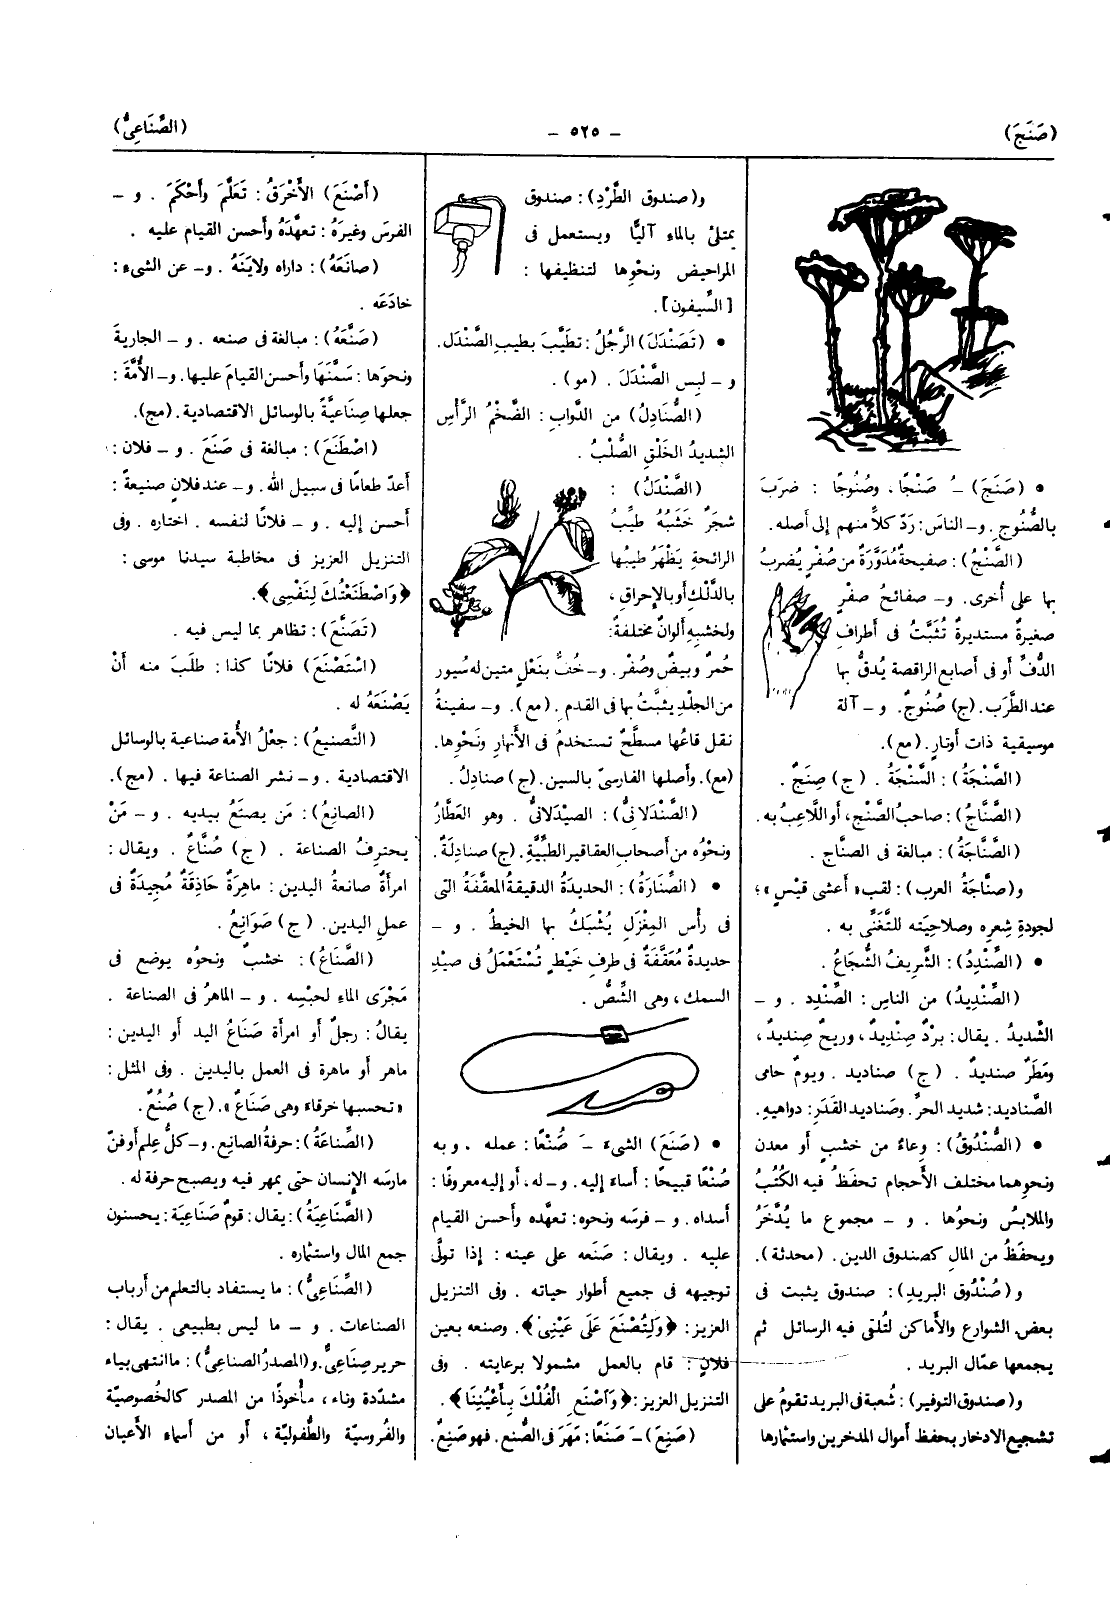 (صَنَجَ)
– ٥٢٥ –
(الصِّنَاعِىُّ)
• (صَنَجَ) ـُ صَنْجًا، وصُنُوجًا : ضرَبَ
بالصُّنُوج. و– الناسَ: رَدّ كلاًّ منهم إلى أصله.
(الصَّنْجُ): صفيحةٌ مُدَوَّرَةٌ من صُفْرٍ يُضرَبُ
بها على أُخرى. و– صفائحُ صفْرٍ
صغيرةٌ مستديرةٌ تُثبَّتُ فى أطرافِ
الدُّفِّ أو فى أصابع الراقصة يُدقُّ بها
عند الطَّرَب. (ج) صُنُوجٌ. و– آلة
موسيقية ذات أوتار. (مع).
(الصَّنْجَةُ): السَّنْجَةُ . (ج) صِنَجٌ .
(الصَّنَّاجُ): صاحبُ الصَّنْج، أو اللَّاعِبُ به.
(الصَّنَّاجَةُ): مبالغة فى الصنَّاج .
و (صنَّاجَةُ العرب): لقب « أعشى قيْس »؛
لجودةِ شِعرِه وصلاحِيَته للتَّغَنِّى به .
• (الصِّنْدِدُ): الشَّرِيفُ الشُّجَاعُ .
(الصِّنْدِيدُ) من الناس: الصِّنْدِد . و –
الشَّديدُ . يقال: بَرْدٌ صِنْدِيدٌ، وريحٌ صِنديدٌ،
ومَطَرٌ صنديدٌ . (ج) صناديد . ويومٌ حامى
الصَّناديد: شديد الحرِّ. وصَناديد القَدَر: دواهيهِ.
• (الصُّنْدُوقُ): وِعاءٌ من خشبٍ أو معدن
ونحوِهما مختلف الأحجام تحفَظُ فيه الكُتُبُ
والملابسُ ونحوُها . و – مجموع ما يُدَّخَرُ
ويحفَظُ من المال كصندوق الدين. (محدثة).
و (صُنْدُوق البريد): صندوق يثبت فى
بعض الشوارع والأماكن لتُلقى فيه الرسائل ثم
يجمعها عمّال البريد .
و (صندوق التوفير): شُعبة فى البريد تقومُ على
تشجيع الادخار بحفظ أموال المدخرين واستثمارها
و (صندوق الطَّرْدِ): صندوق
يمتلئ بالماء آليًّا ويستعمل فى
المراحيض ونحْوِها لتنظيفها :
[السِّيفون].
• (تَصَنْدَلَ) الرَّجُلُ: تَطَيَّبَ بطيبِ الصَّنْدَل.
و – لبِس الصَّنْدَلَ . (مو).
(الصُّنَادِلُ) من الدَّوابِ: الضَّخْمُ الرَّأْسِ
الشديدُ الخَلْقِ الصُّلْبُ .
(الصَّنْدَلُ) :
شجَرٌ خَشَبُهُ طيِّبُ
الرائحةِ يَظْهَرُ طيبُها
بالدَّلْكِ أو بالإحراق،
ولخشبِهِ ألوانٌ مختلفةٌ:
حُمرٌ وبيضٌ وصُفْر. و– خُفٌّ بنَعْلٍ متين له سُيور
من الجلْدِ يثبَّتُ بها فى القدم. (مع). و– سفينةُ
نقل قاعُها مسطَّحٌ تستخدمُ فى الأنهارِ ونَحْوِها.
(مع). وأصلها الفارسىّ بالسين. (ج) صنادِلُ.
(الصَّنْدَلانىُّ): الصيْدَلانىُّ . وهو العَطَّارُ
ونحْوُه من أصحاب العقاقير الطبِّيَّةِ. (ج) صنادِلةٌ.
• (الصِّنَارَةُ): الحديدةُ الدقيقةُ المعَقَّفَةُ التى
فى رأْس المِغْزَلِ يُشْبَكُ بها الخيطُ . و –
حديدةٌ مُعَقَّفَةٌ فى طرفِ خَيْطٍ تُسْتَعْمَلُ فى صيْدِ
السمك، وهى الشِّصُّ .
• (صَنَعَ) الشىءَ ـَ صُنْعًا: عمله . و به
صُنْعًا قبيحًا: أساءَ إليه. و– له، أو إليه معروفًا:
أسداه. و– فرسَه ونحوه: تعهَّده وأحسن القيام
عليه . ويقال: صَنَعه على عينه: إذا تولَّى
توجيهه فى جميع أطوار حياته . وفى التنزيل
العزيز: ﴿وَلِتُصْنَعَ عَلَى عَيْنِىْ﴾. وصنعه بعين
فلانٍ: قام بالعمل مشمولا برعايته . وفى
التنزيل العزيز: ﴿وَاصْنَعِ الْفُلْكَ بِأَعْيُنِنَا﴾.
(صَنِعَ) ـَ صَنَعًا: مَهَرَ فى الصُّنع. فهو صَنِعٌ.
(أَصْنَعَ) الأَخْرَقُ: تَعَلَّمَ وأَحْكَمَ . و –
الفرسَ وغيرَهُ: تعهَّدَهُ وأحسن القيام عليه .
(صانَعَهُ): داراه ولايَنَهُ . و– عن الشىءِ:
خادَعَه .
(صَنَّعَهُ): مبالغة فى صنعه . و – الجاريةَ
ونحوَها: سَمَّنَهَا وأحسن القيامَ عليها. و– الأُمَّةَ:
جعلها صِنَاعيَّةً بالوسائل الاقتصادية. (مج).
(اصْطَنَعَ): مبالغة فى صَنَعَ . و– فلان:
أعدّ طعامًا فى سبيل الله. و– عند فلانٍ صنيعةً:
أحسن إليه . و – فلانًا لنفسه . اختاره . وفى
التنزيل العزيز فى مخاطبة سيدنا موسى:
﴿وَاصْطَنَعْتُكَ لِنَفْسِى﴾.
(تَصَنَّعَ): تظاهر بما ليس فيه .
(اسْتَصْنَعَ) فلانًا كذا: طلَبَ منه أنْ
يَصْنَعَهُ له .
(التَّصنيعُ): جعْلُ الأُمة صناعية بالوسائل
الاقتصادية . و– نشر الصناعة فيها . (مج).
(الصانِعُ): مَن يصنَعُ بيديه . و – مَنْ
يحترِفُ الصناعة . (ج) صُنَّاعٌ . ويقال:
امرأَةٌ صانعةُ اليدين: ماهِرَةٌ حَاذِقَةٌ مُجِيدَةٌ فى
عملِ اليدين. (ج) صَوَانِعُ.
(الصَّنَاعُ): خشبٌ ونحوُه يوضع فى
مَجْرَى الماءِ لحَبْسِه . و – الماهرُ فى الصناعة .
يقالُ: رجلٌ أو امرأة صَنَاعُ اليد أو اليدين:
ماهر أو ماهرة فى العمل باليدين . وفى المثل:
« تحسبها خرقاءَ وهى صَنَاعٌ ». (ج) صُنُعٌ.
(الصِّناعَةُ): حرفة الصانِع. و– كلُّ عِلم أو فنّ
مارسَه الإنسان حتى يمهر فيه ويصبح حرفة له.
(الصَّنَاعِيَةُ): يقال: قومٌ صَنَاعِيَة: يحسنون
جمع المال واستثماره.
(الصِّنَاعِىُّ): ما يستفاد بالتعلم من أرباب
الصناعات . و – ما ليس بطبيعى . يقال:
حرير صِنَاعِىٌّ. و (المصدرُ الصناعىُّ): ما انتهى بياء
مشدّدة وتاء، مأخوذًا من المصدر كالخُصوصيّة
والفُروسيّة والطُّفوليّة، أو من أسماءِ الأعيان